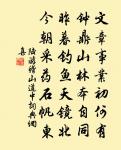 文章事業初何有
钟鼎山林本自同
昨暮钓鱼天镜北
今朝采药石帆東
陆游稽山道中词典网
喜